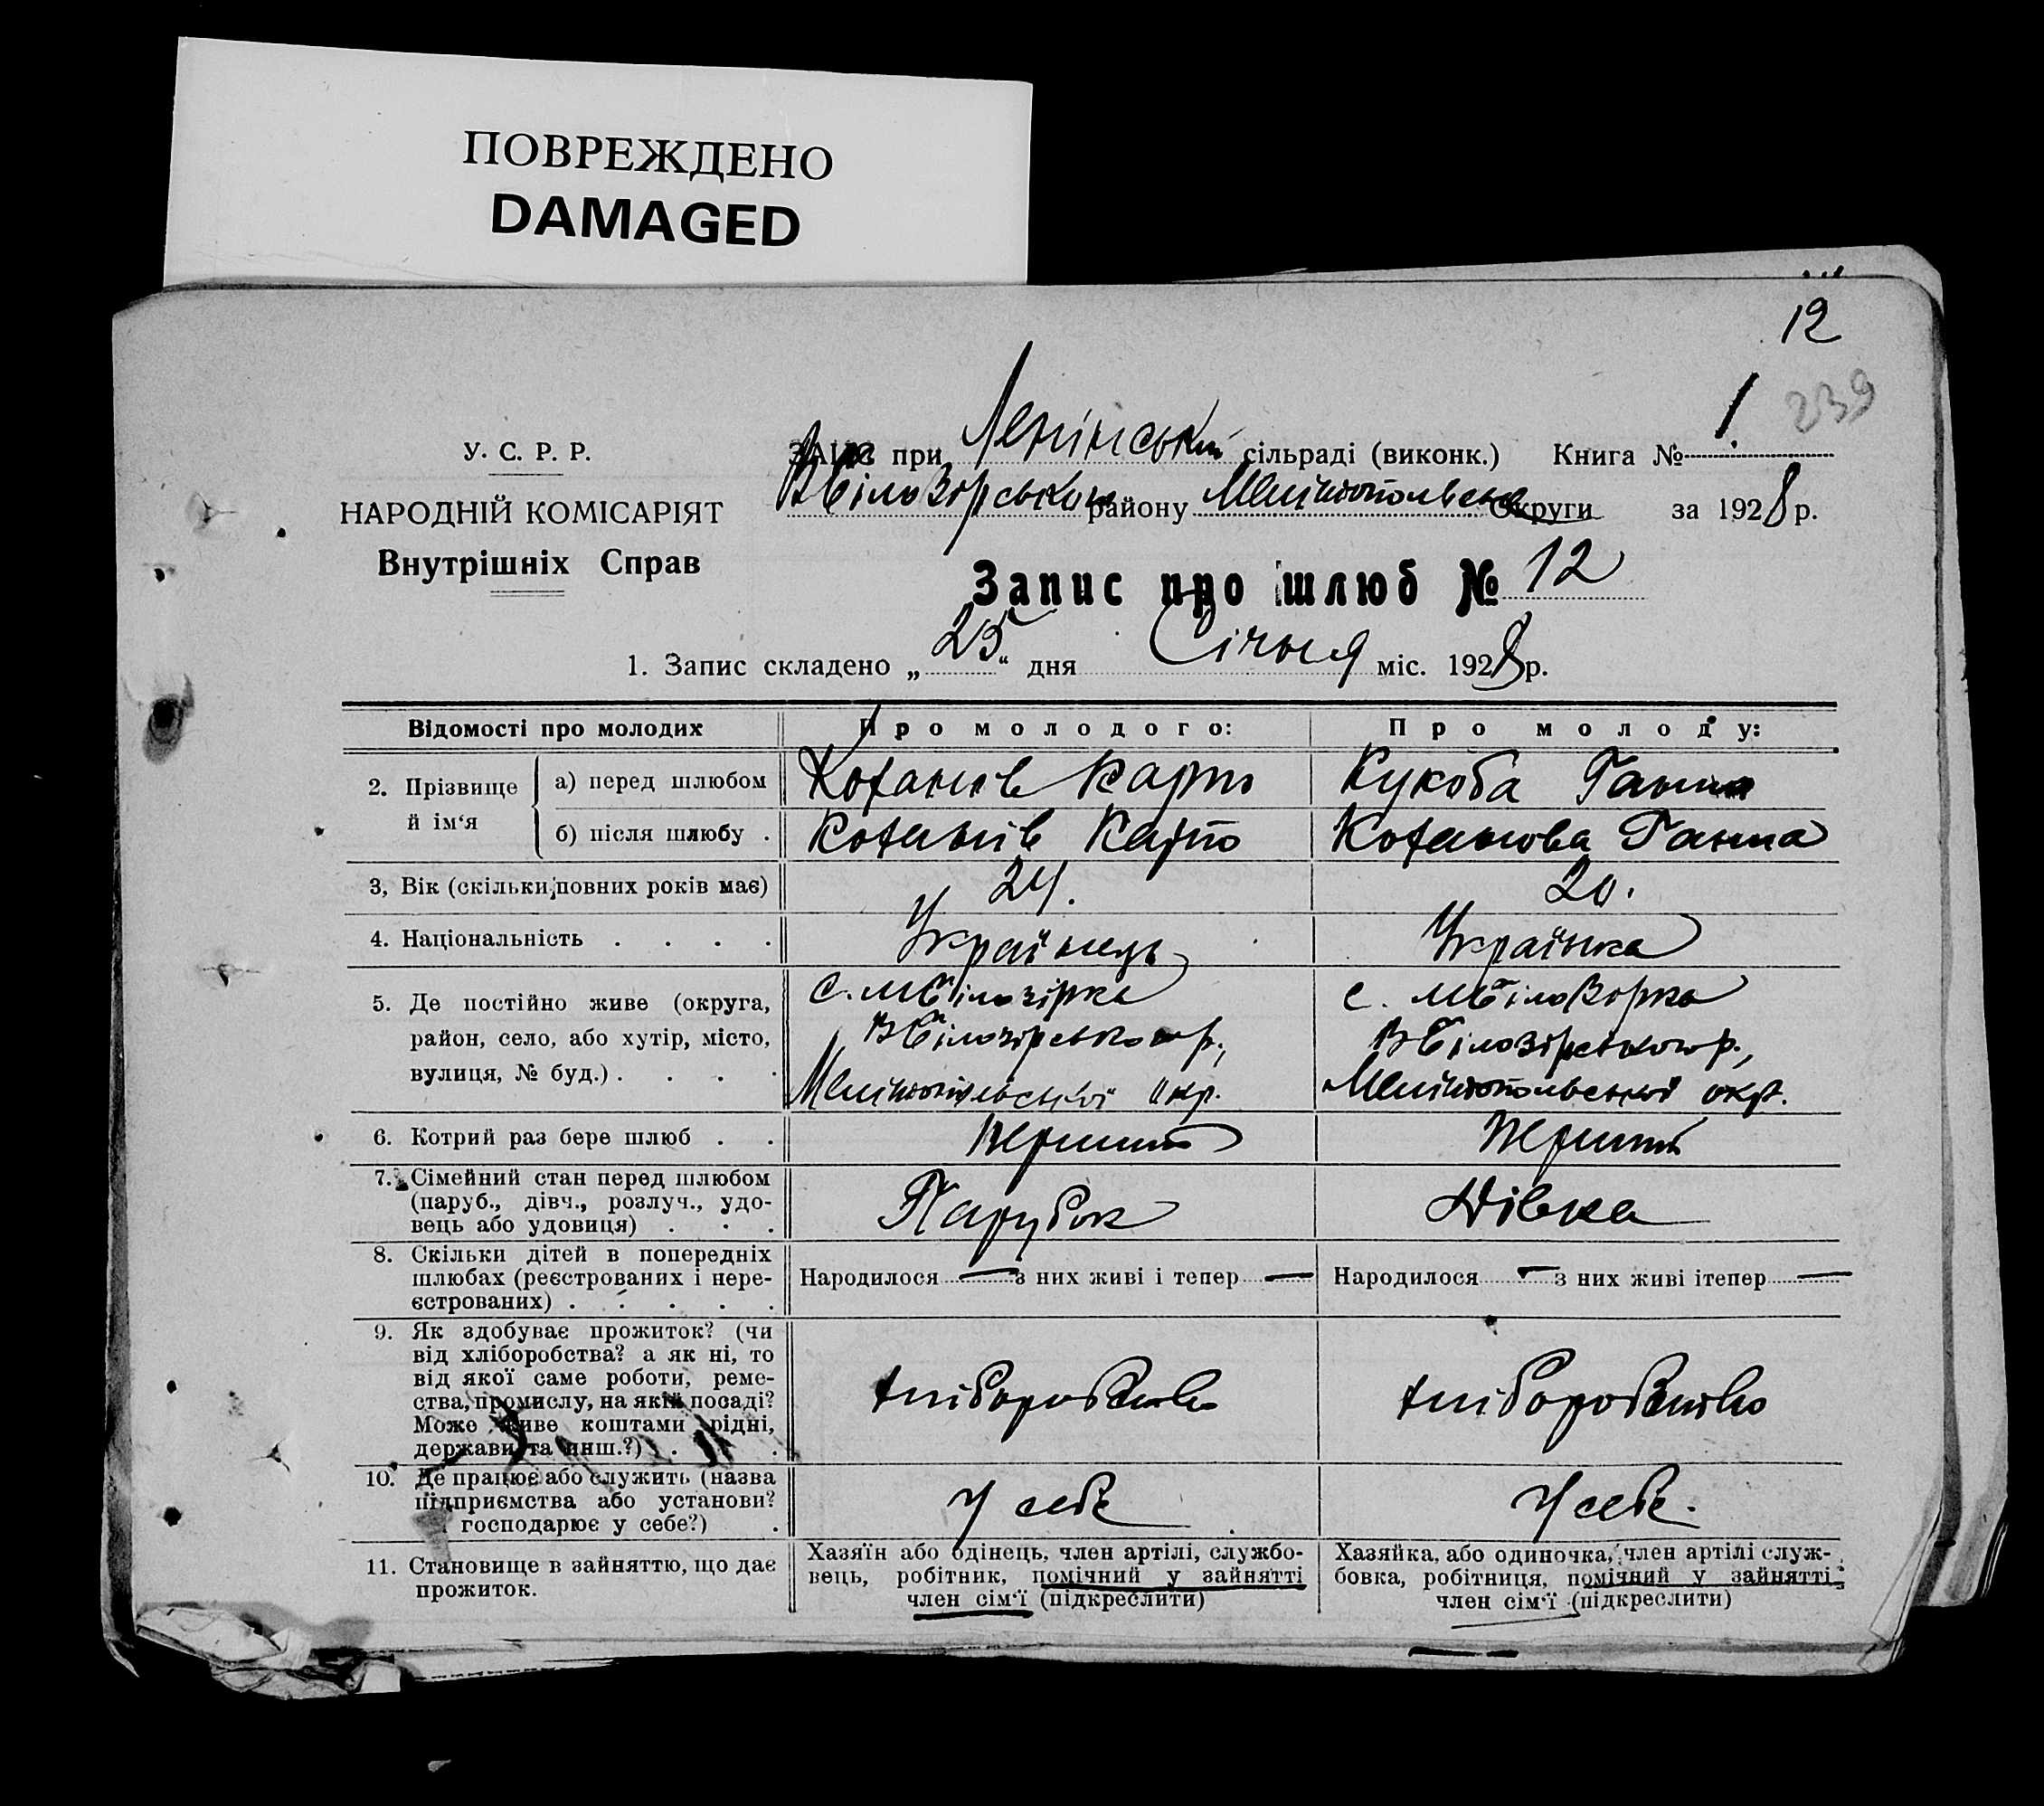 ПОВРЕЖДЕНО
DAMAGED
12
239
У. С. Р. Р.
НАРОДНІЙ КОМІСАРІЯТ
Внутрішніх Справ
ЗАГС при Ленінській сільраді (виконк.) Книга № 1
ВБілозірського району Мелітопольськ Округи за 1928 р.
Запис про шлюб № 12
1. Запис складено „25“ дня Січня міс. 1928 р.
Відомості про молодих
Про молодого:
Про молоду:
2. Прізвище й ім‘я
а) перед шлюбом
Коханів Карпо
Кукоба Ганна
б) після шлюбу .
Коханів Карпо
Коханова Ганна
3, Вік (скільки повних років має)
24.
20.
4. Національність . . . .
Українець
Українка
5. Де постійно живе (округа,
район, село, або хутір, місто,
вулиця, № буд.) . . . .
с. МБілозірка
ВБілозірського р.,
Мелітопільської окр.
с. МБілозорка
ВБілозірського р.,
Мелітопольської окр.
6. Котрий раз бере шлюб . .
Перший
Перший
7. Сімейний стан перед шлюбом
(паруб., дівч., розлуч., удо-
вець або удовиця) . . .
Парубок
Дівка
8. Скільки дітей в попередніх
шлюбах (реєстрованих і нере-
єстрованих) . . . . .
Народилося — з них живі і тепер —
Народилося — з них живі ітепер —
9. Як здобуває прожиток? (чи
від хліборобства? а як ні, то
від якої саме роботи, реме-
ства, промислу, на якій посаді?
Може живе коштами рідні,
держави та инш.?) . .
хліборобство
хліборобство
10. Де працює або служить (назва
підприємства або установи?
господарює у себе?) .
У себе
У себе.
11. Становище в зайняттю, що дає
прожиток.
Хазяїн або одінець, член артілі, службо-
вець, робітник, помічний у зайнятті
член сім‘ї (підкреслити)
Хазяйка, або одиночка, член артілі служ-
бовка, робітниця, помічний у зайнятті
член сім‘ї (підкреслити)